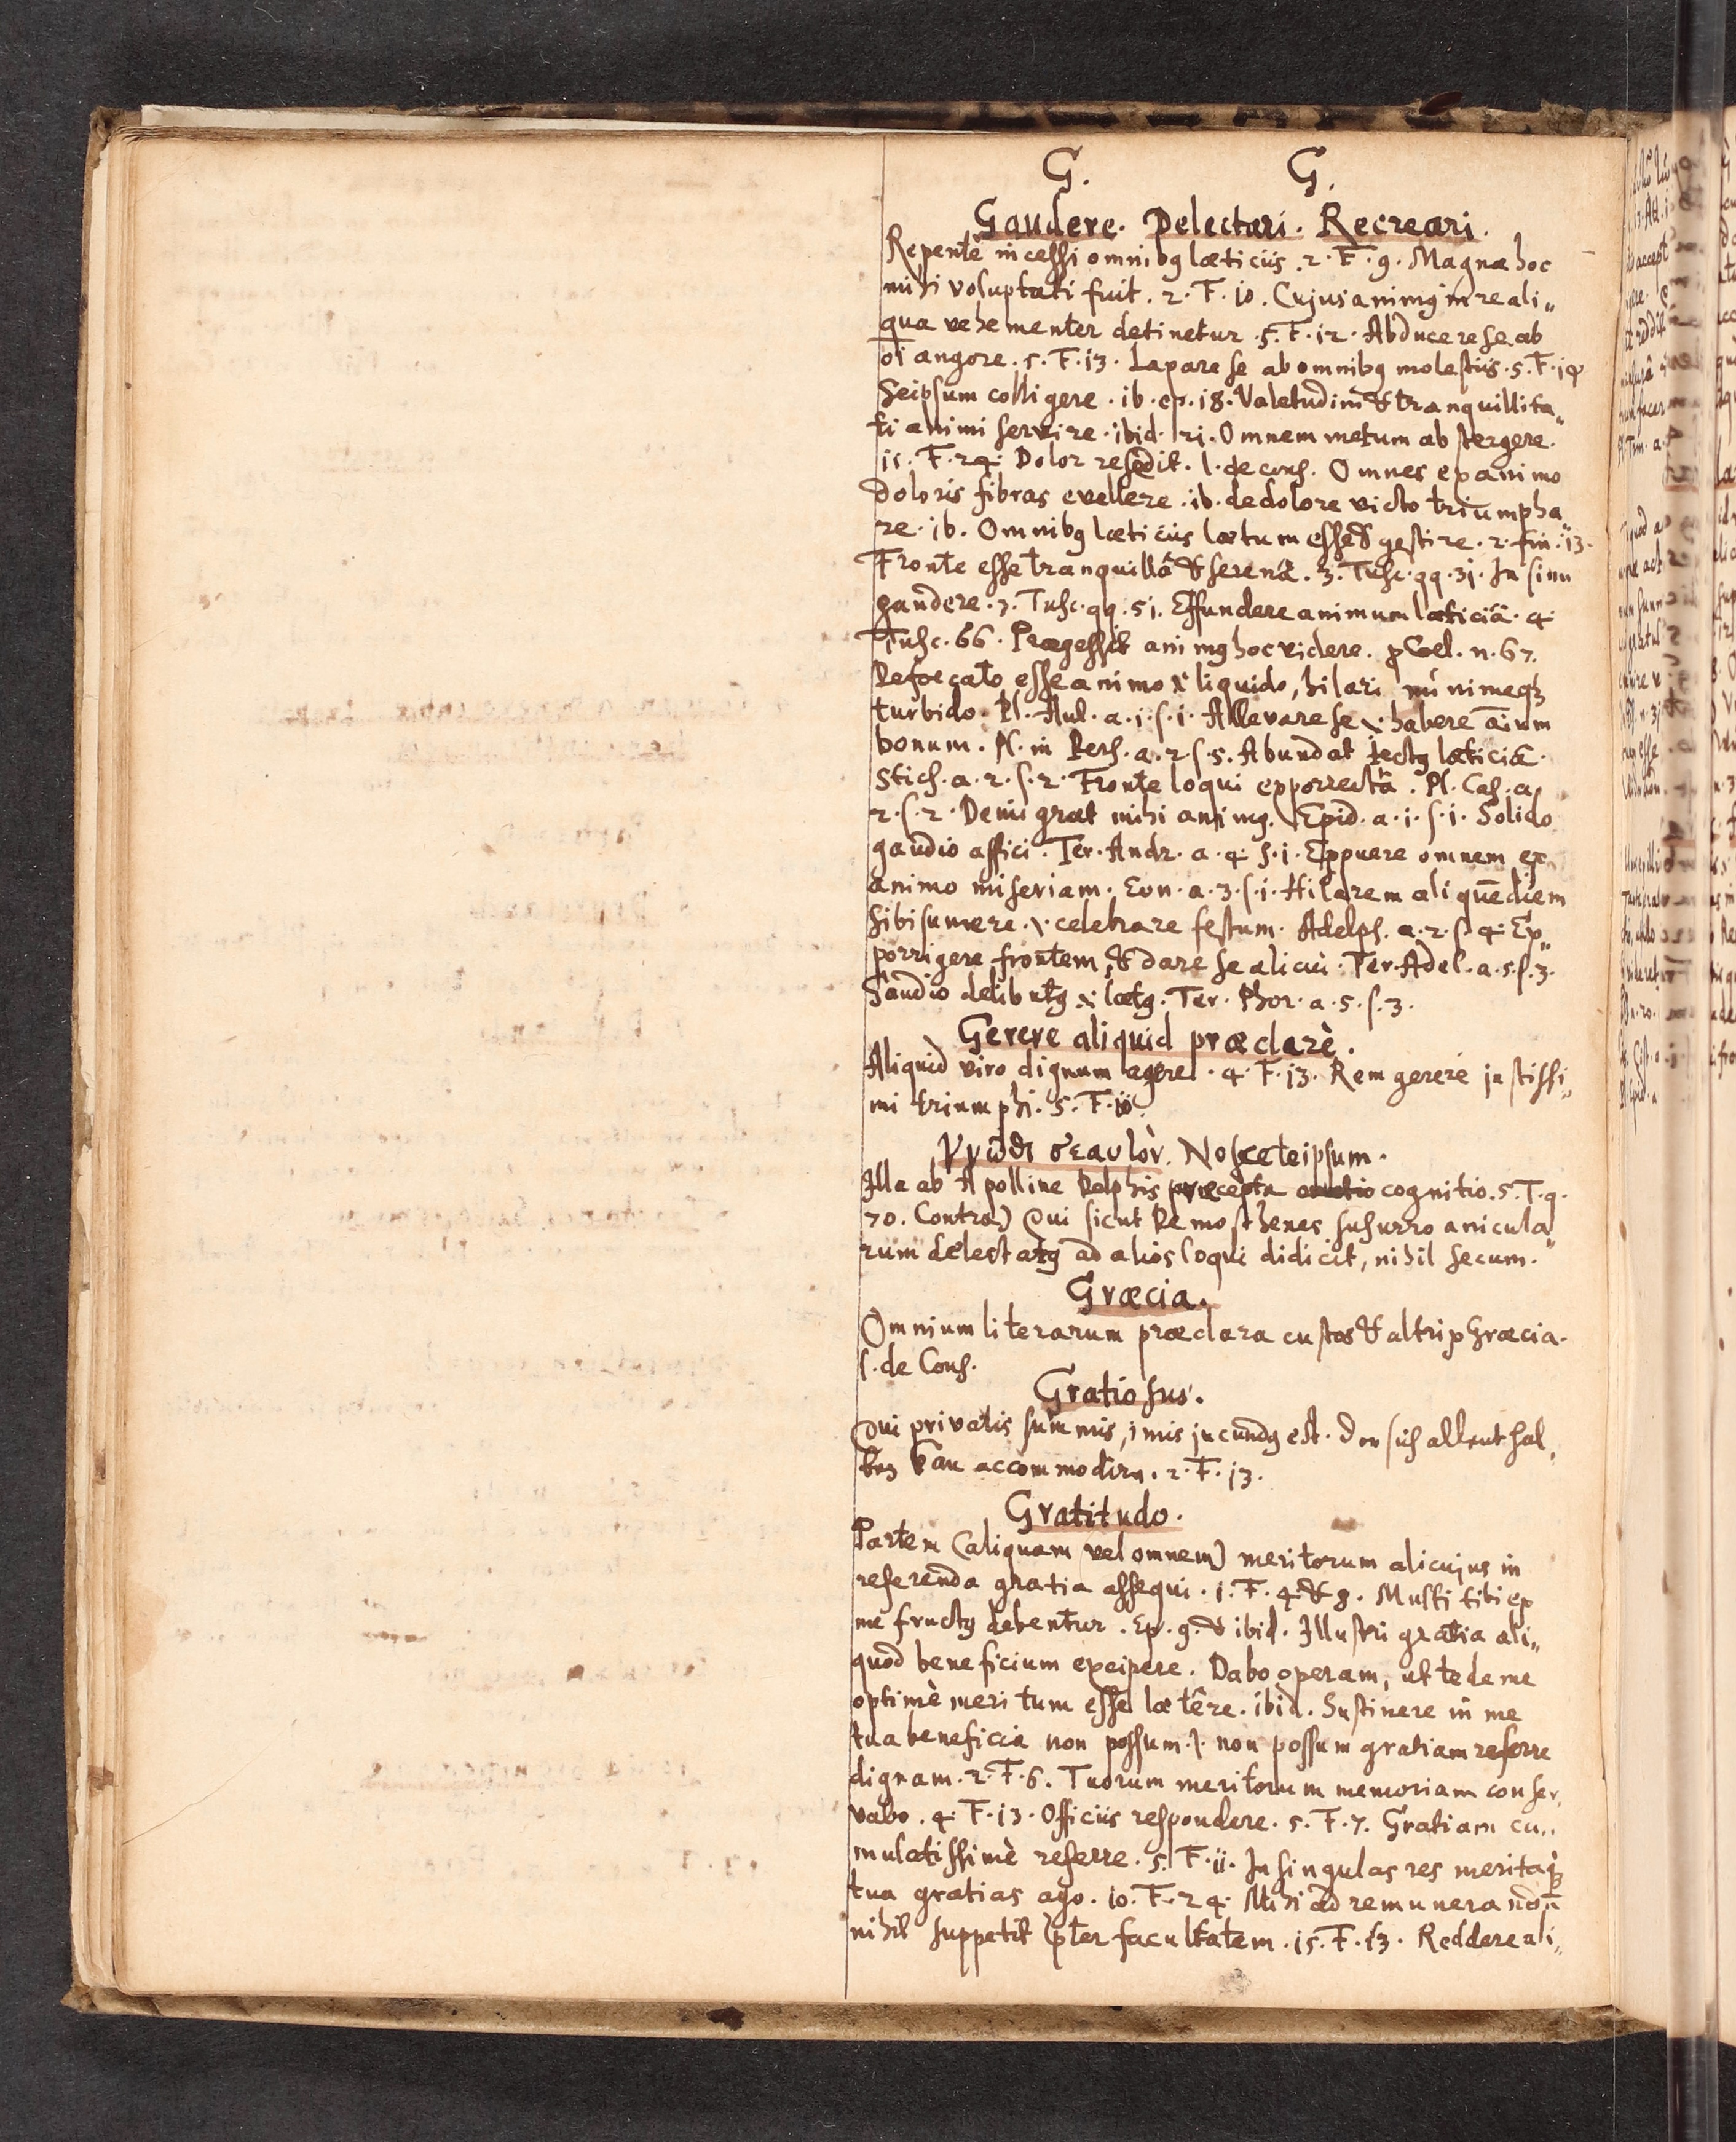 G. G.
Gaudere. Delectari. Recreari.
Repentè incessi omnibꝰ læticiis. 2. F. 9. Magnæ hoc
mihi voluptati fuit. 2. F. 10. Cujus animꝰ in re ali„
qua vehementer detinetur. 5. F. 12. Abducere se ab
oī angore. 5. F. 13. Laxare se ab omnibꝰ molestiis. 5. F. 14
Seipsum colligere. ib. ep. 18. Valetudini & tranquillita„
ti animi servire. ibid. 21. Omnem metum abstergere.
15. F. 24. Dolor resedit. l. de cons. Omnes ex animo
doloris fibras evellere. ib. de dolore victo triumpha„
re. ib. Omnibꝰ læticiis lætum esse & gestire. 2. fin. 13.
Fronte esse tranquillâ & serenâ. 3. Tusc. qq. 31. In sinu
gaudere. 3. Tusc. qq. 51. Effundere animum læticiâ. 4
Tusc. 66. Præegessit animꝰ hoc videre. p Coel. n. 67.
Defoecato esse animo liquido, hilari minimeqꝫ
turbido. Pl. Aul. a. 1. s. 1. Allevare se habere aīum
bonum. Pl. in Pers. a. 2. s. 5. Abundat pectꝰ læticiâ.
Stich. a. 2. s. 2. Fronte loqui exporrectâ. Pl. Cas. a.
2. s. 2. Demigrat mihi animꝰ. Epid. a. 1. s. 1. Solido
gaudio affici. Ter. Andr. a. 4. s. 1. Expuere omnem ex
animo miseriam. Eun. a. 3. s. 1. Hilarem aliquē diem
sibi sumere. celebrare festum. Adelph. a. 2. s. 4. Ex„
porrigere frontem, & dare se alicui. Ter. Adel. a. 5. s. 3.
Gaudio delibutꝰ lætꝰ. Ter. Phor. a. 5. s. 3.
Gerere aliquid præclarè.
Aliquid viro dignum agere. 4. F. 13. Rem gerere justissi„
mi triumphi. 5. F. 10.
Γνῶθι σεαυτόν. Nosce teipsum.
Illa ab Apolline Delphis præcepta cognitio. 5. T. q.
70. Contra) Qui sicut Demosthenes susurro anicula„
rum delectatꝰ ad alios loqui didicit, nihil secum.
Græcia.
Omnium literarum præclara custos & altrix Græcia.
l. de Cons.
Gratiosus.
Qui privatis summis, imis jucundꝰ est. Der sich allenthal„
ben kan accommodirn. 2. F. 13.
Gratitudo.
Partem (aliquam vel omnem) meritorum alicujus in
referenda gratia assequi. 1. F. 4. & 8. Multi tibi ex
me fructꝰ debentur. Ep. 9. & ibid. Illustri gratia ali„
quod beneficium excipere. Dabo operam, ut te de me
optimè meritum esse lætêre. ibid. Sustinere in me
tua beneficia non possum. non possum gratiam referre
dignam. 2. F. 6. Tuorum meritorum memoriam conser„
vabo. 4. F. 13. Officiis respondere. 5. F. 7. Gratiam cu„
mulatissimè referre. 5. F. 11. In singulas res meritaqꝫ
tua gratias ago. 10. F. 24. Mihi ad remunerandū
nihil suppetit pter facultatem. 15. F. 13. Reddere ali„